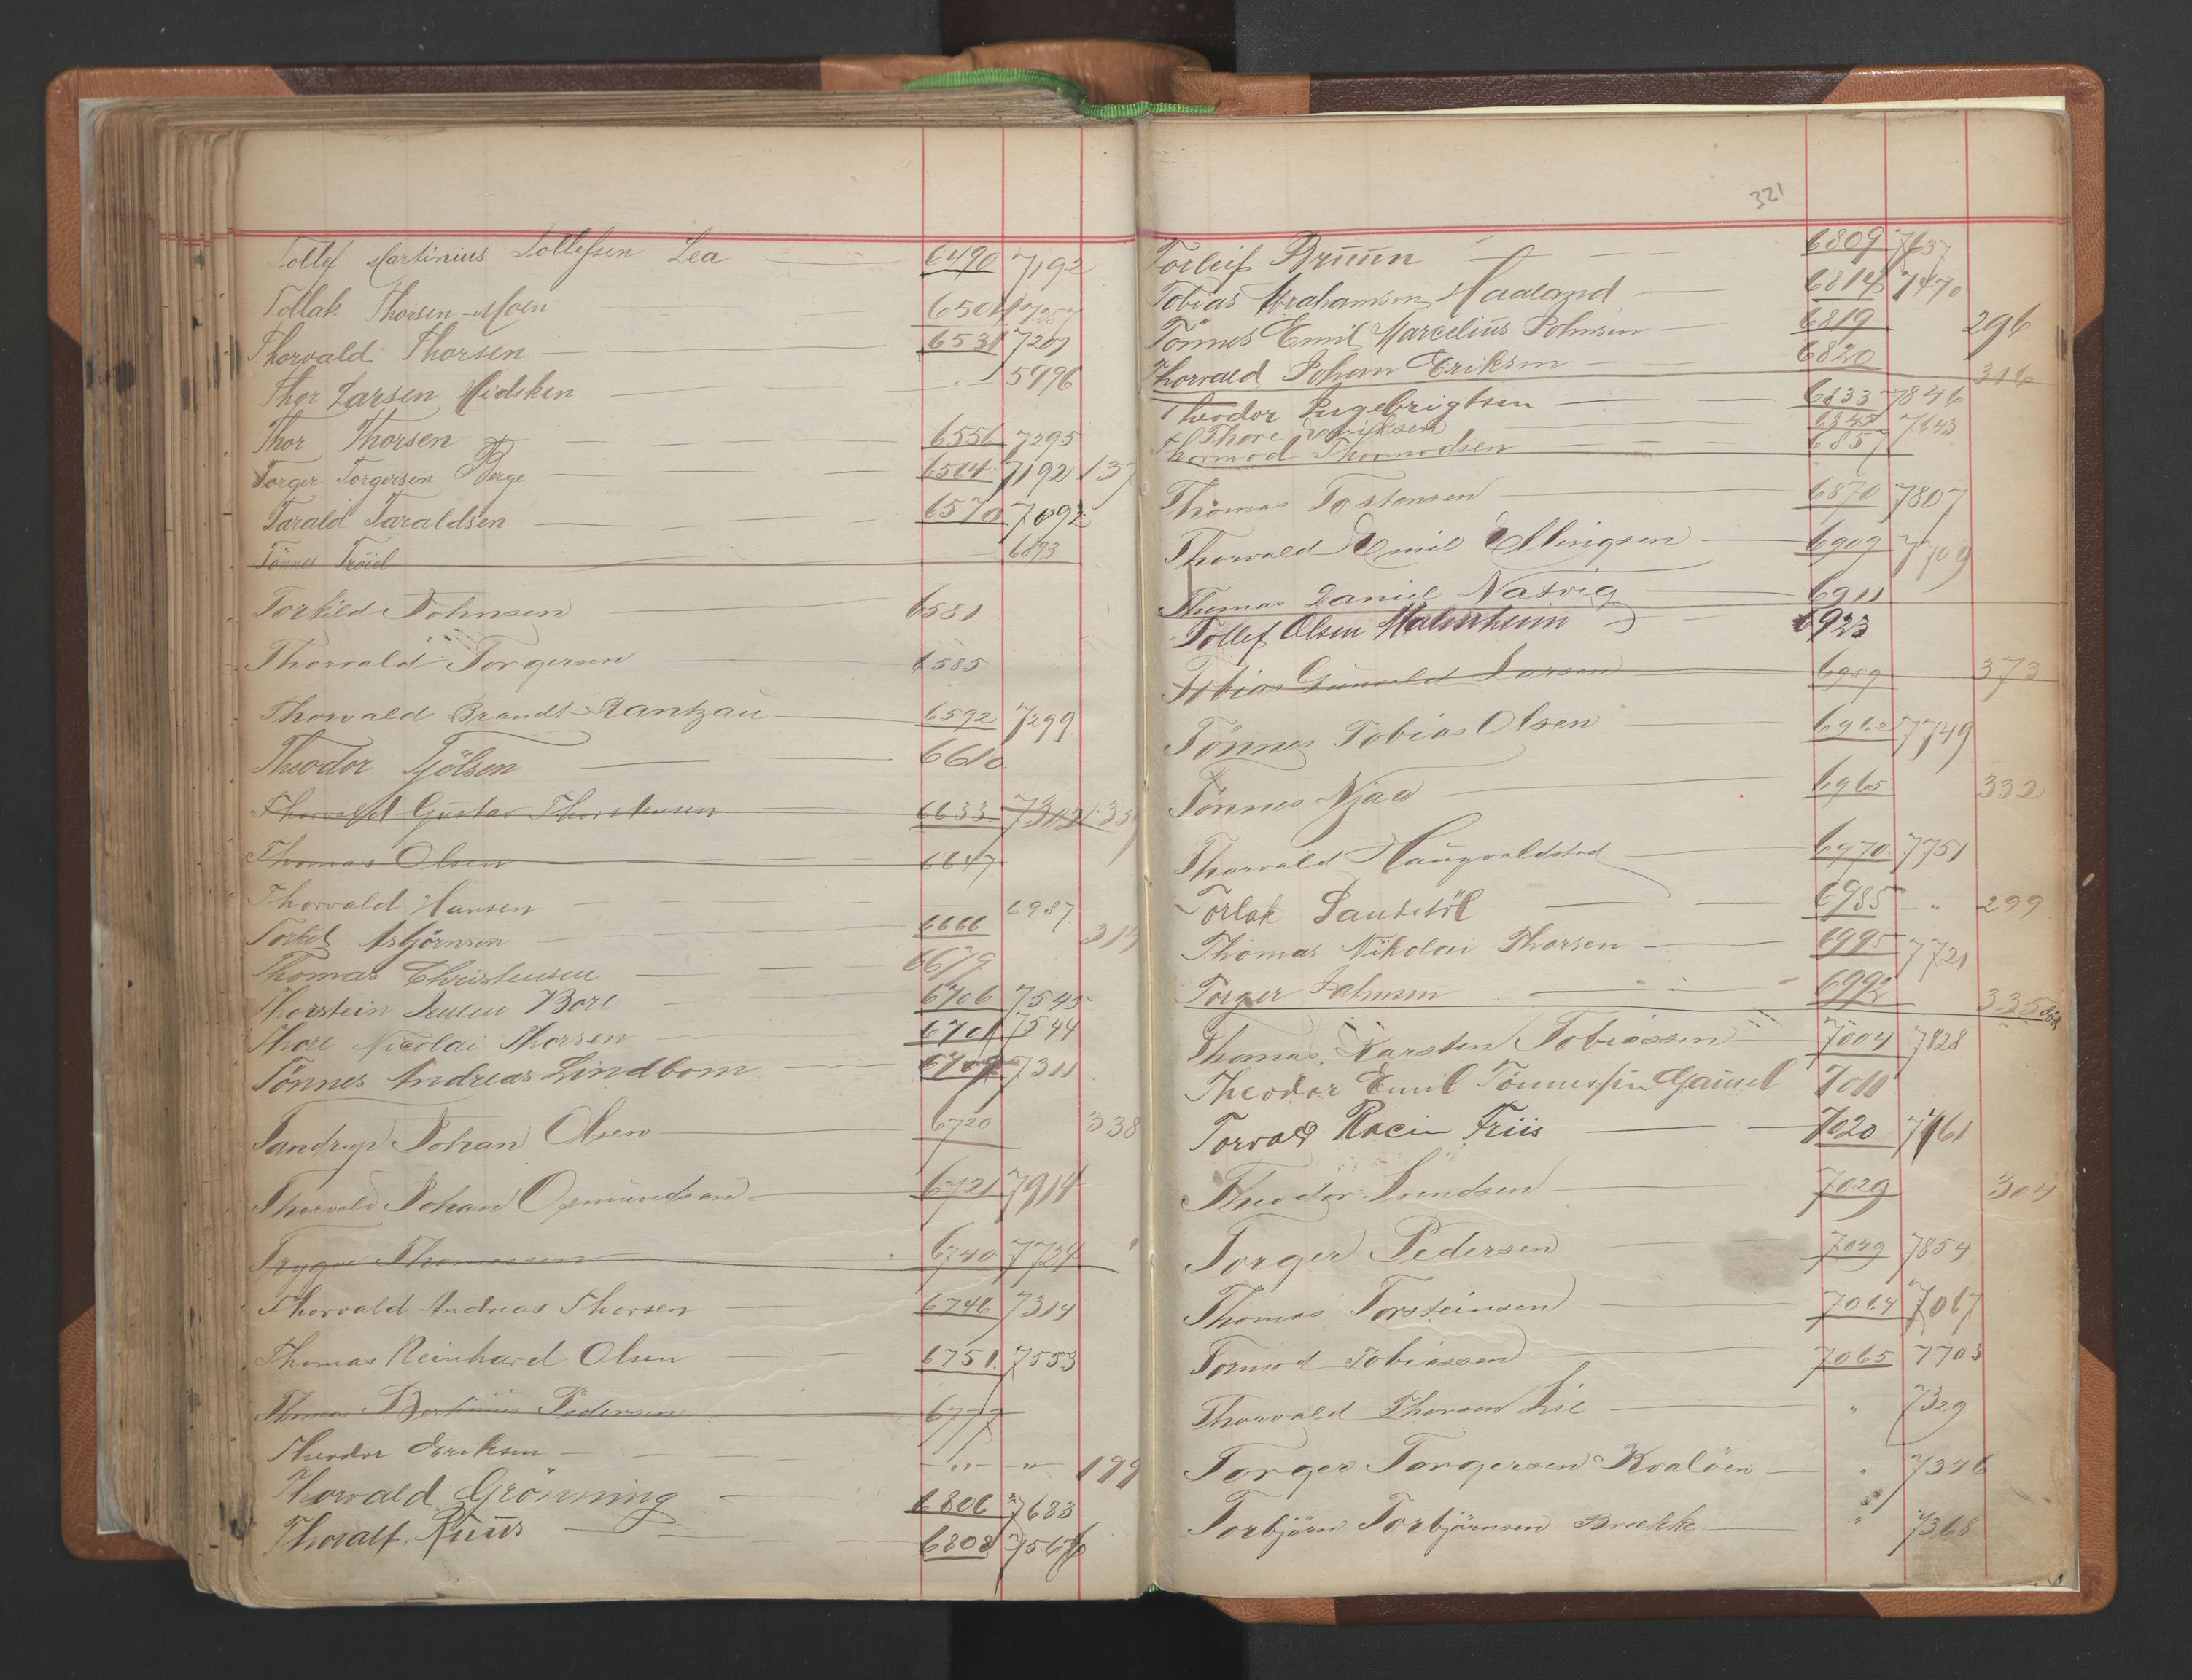 Tollef Martinius Tollefsen Lea 6490 7192
Tollak Thorsen Moen 6501 7257
Thorvald Thorsen 6531 7201
Thor Larsen 5996
Thor Thorsen 6556 7295
Torger Torgersen Berge 6564 7192 137
Tarald Taraldsen 6570 7092
Tönnes Tröiel 6893
Torkild Johnsen 6581
Thorvald Torgersen 6585
Thorvald Brandt Rantzau 6592 7299
Theodor Tjölsen 6610
Thorvald Gustav Thorstensen 6633 7312
Thomas Olsen 6647
Thorvald Hansen 6987
Torkel Asbjörnsen 6666
Thomas Christensen 6679
Thorstein Jensen Bore 6706 7545
Thore Nicolai Thorsen 6701 7544
Tönnes Andreas Lindbom 6709 7311
Tandrup Johan Olsen 6720 338
Thorvald Johan Osmundsen 6721 7914
Trygve Thomassen 6740 7734
Thorvald Andreas Thorsen 6746 7314
Thomas Reinhard Olsen 6751 7553
Thomas Bertinius Pedersen 6777
Theodor Eriksen — " — — " — 199
Thorvald Grönning 6806 7683
Thoralf Ruus 6808
321
Torleif Bruun 6809 7637
Tobias Abrahamsen Haaland 6814 7470
Tönnes Emil Marcelius Johnsen 6819 296
Thorvald Johan Eriksen 6820 316
Theodor Ingebrigtsen 6833 7846
Thore 6845 7643
Thormod Thormodsen 6857
Thomas Tostensen 6870 7807
Thorvald Emil Ellingsen 6909 7709
Thomas Daniel Natvig 6911
Tollef Olsen Malmheim 6923
Tobias Gunvald Larsen 6959 373
Tönnes Tobias Olsen 6962 7749
Tönnes Njaa 6965 332
Thorvald Haugvaldstad 6970 7751
Torlak 6985 — " 299
Thomas Nikolai Thorsen 6995 7721
Torger Johnsen 6992 335 död
Thomas Karsten Tobiassen 7004 7828
Theodor Emil Tönnessen Gausel 7011
Torvald Racin Friis 7020 7461
Theodor Svendsen 7029 304
Torger Pedersen 7049 7854
Thomas Torsteinsen 7064 7067
Tormod Tobiassen 7065 7703
Thorvald Thorsen Lie " 7329
Torger Torgersen Kvalöen " 7346
Torbjörn Torbjörnsen Brekke " 7368